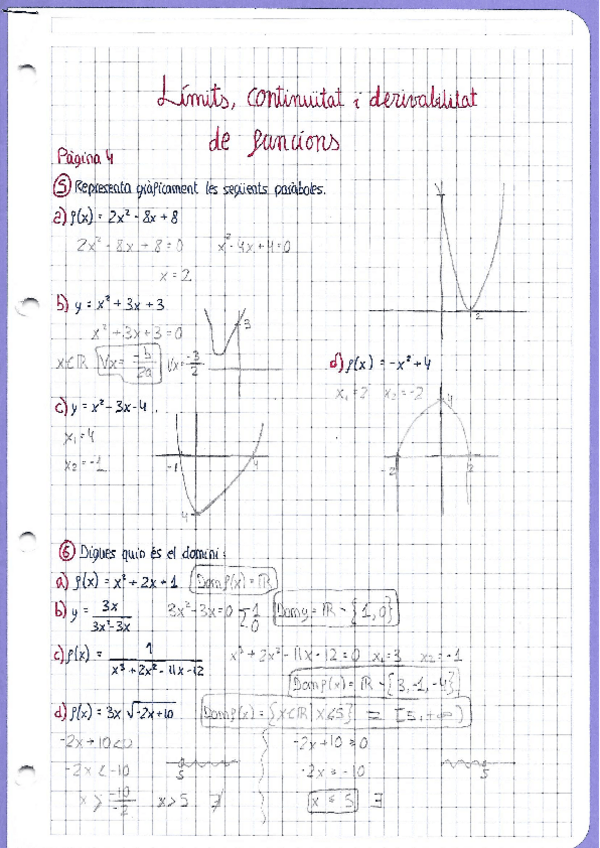 Límits, continuïtat i derivabilitat
de funcions
Pàgina 4
⑤ Representa gràficament les següents paràboles.
a) f(x) = 2x² - 8x + 8
2x² - 8x + 8 = 0    x² - 4x + 4 = 0
x = 2
2
b) y = x² + 3x + 3
x² + 3x + 3 = 0
x∉ℝ    Vx = -b/2a    Vx = -3/2
3
d) f(x) = -x² + 4
x₁ = 2    x₂ = -2
4
-2    2
c) y = x² - 3x - 4
x₁ = 4
x₂ = -1
-1    4
-4
⑥ Digues quin és el domini:
a) f(x) = x² + 2x + 1    Dom f(x) = ℝ
b) y = 3x/(3x² - 3x)    3x² - 3x = 0    1    0    Dom y = ℝ - {1, 0}
c) f(x) = 1/√(x³ + 2x² - 11x - 12)    x³ + 2x² - 11x - 12 = 0    x₁ = 3    x₂ = -1
Dom f(x) = ℝ - {3, -1, -4}
d) f(x) = 3x √(-2x + 10)    Dom f(x) = {x∈ℝ | x≤5} = [5, +∞)
-2x + 10 < 0    -2x + 10 ≥ 0
-2x < -10    5    -2x ≥ -10    5
x > -10/-2    x > 5    ∄    x ≤ 5    ∃